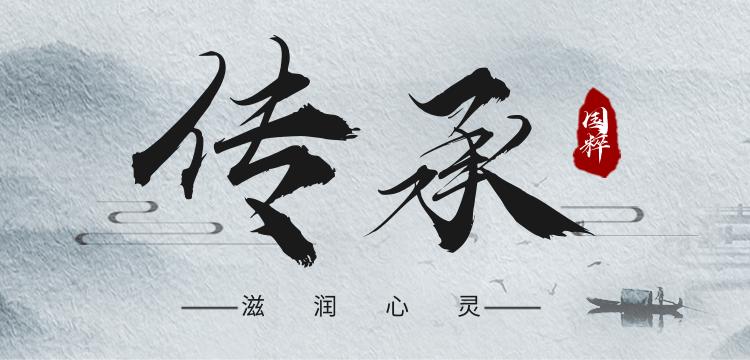 传承
国粹
——滋润心灵——